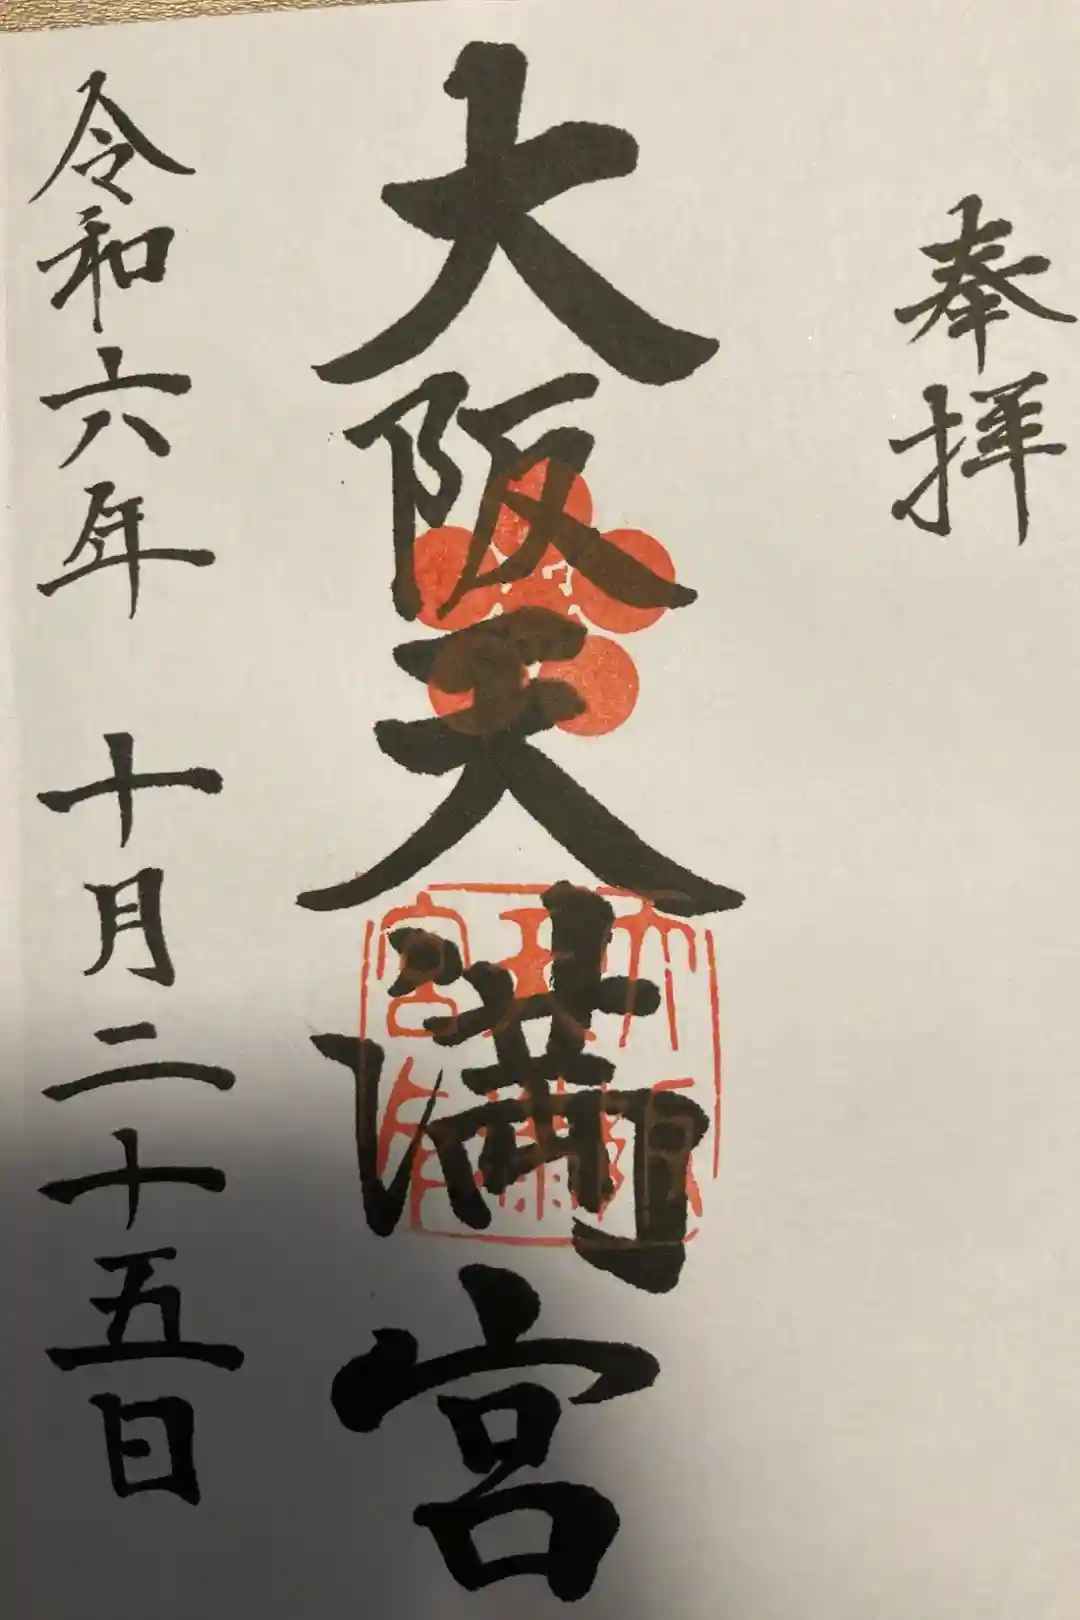 奉拝
大阪天満宮
令和六年 十月二十五日